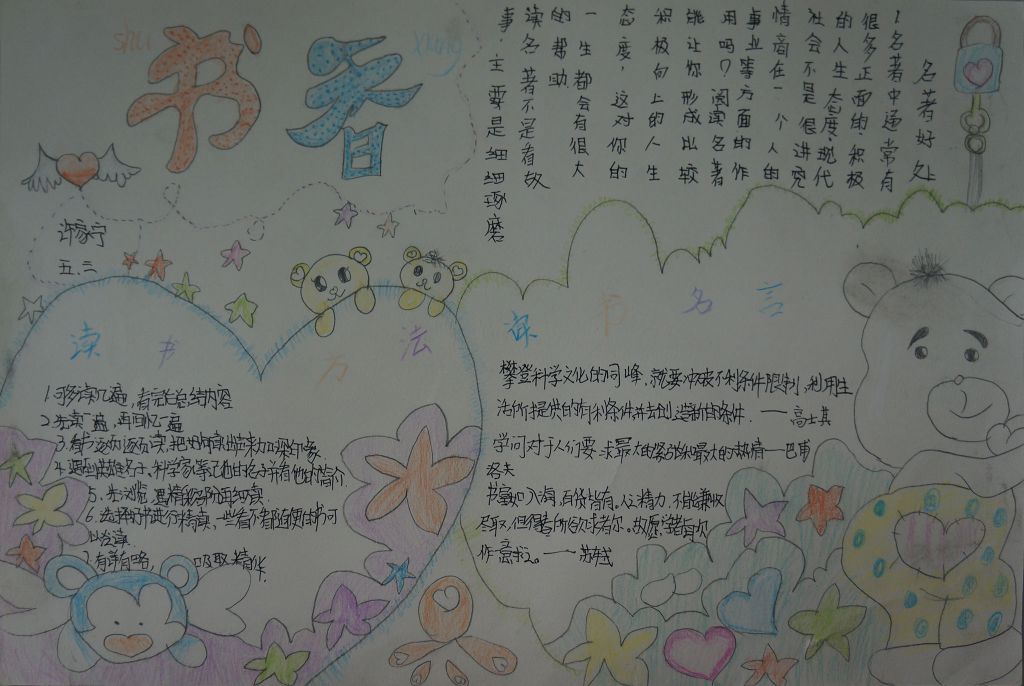 shu
xiang
书香
许家宁
五.二
名著好处
1名著中通常有
很多正面的积极
的人生态度,现代
社会不是很讲究
情商在一个人的
事业等方面的作
用吗?阅读名著
能让你形成比较
积极向上的人生
态度,这对你的
一生都会有很大
的帮助.
读名著不是看故
事.主要是细细琢磨
读书方法
1.可多读几遍,看完总结内容
2.先读一遍,再回忆一遍
5.先浏览,遇精彩部分再细读
6.选择好书进行精读,一些看不看随便的书可
以略读
7.有详有略,吸取精华.
读书名言
攀登科学文化的高峰,就要冲破不利条件限制,利用生
活所提供的有利条件并去创造新的条件.——高士其
学问对于人们要求最大的紧张和最大的热情——巴甫
洛夫
书富如入海,百货皆有,人之精力,不能兼收
尽取,但得其所欲求者尔。故愿学者每次
作一意求之。——苏轼